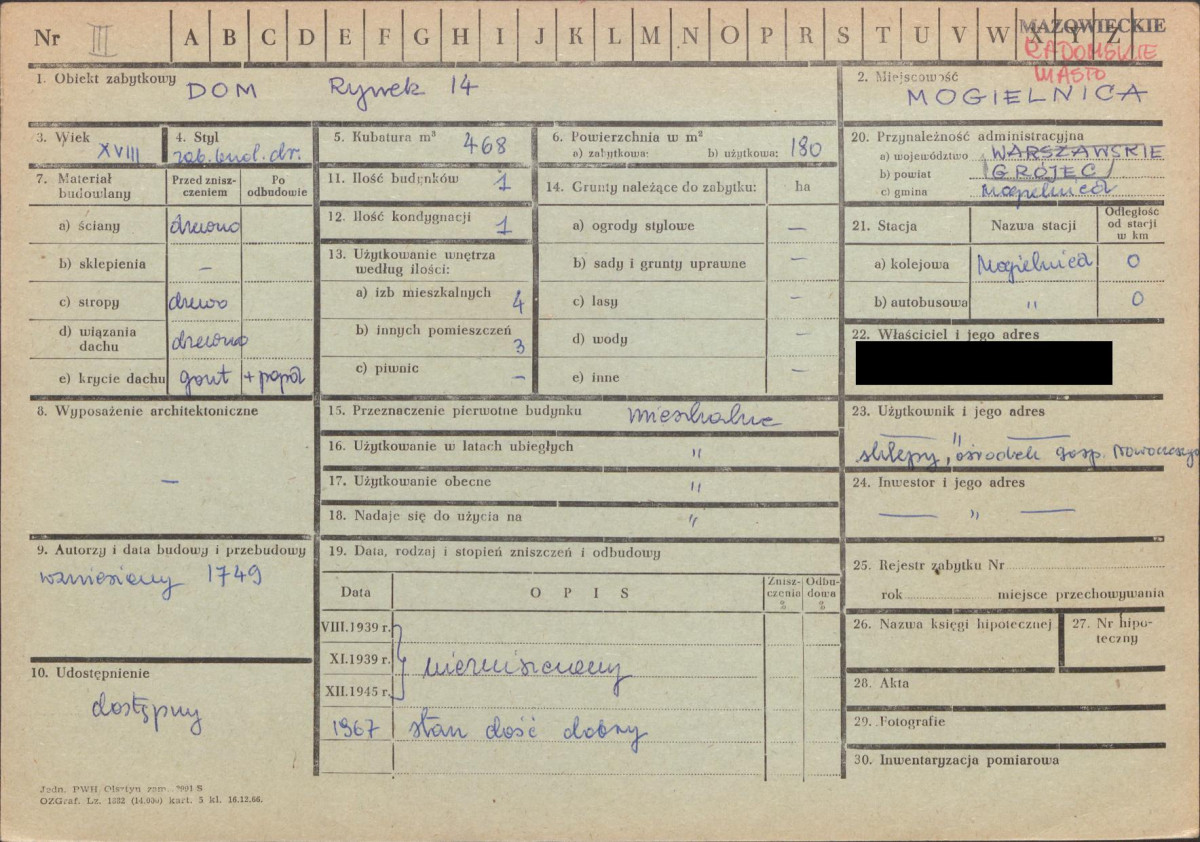 Nr III A B C D E F G H I J K L M N O P R S T U V W X Y Z
MAZOWIECKIE
RADOMSKIE
MIASTO
1. Obiekt zabytkowy DOM Rynek 14
2. Miejscowość
MOGIELNICA
3. Wiek XVIII
4. Styl
zab. bud. dr.
5. Kubatura m³ 468
6. Powierzchnia w m²
a) zabytkowa: b) użytkowa: 180
7. Materiał budowlany
Przed zniszczeniem
Po odbudowie
a) ściany drewno
b) sklepienia –
c) stropy drewno
d) wiązania dachu drewno
e) krycie dachu gont + papa
8. Wyposażenie architektoniczne
–
9. Autorzy i data budowy i przebudowy
wzniesiony 1749
10. Udostępnienie
dostępny
11. Ilość budynków 1
12. Ilość kondygnacji 1
13. Użytkowanie wnętrza
według ilości:
a) izb mieszkalnych 4
b) innych pomieszczeń 3
c) piwnic –
14. Grunty należące do zabytku: ha
a) ogrody stylowe –
b) sady i grunty uprawne –
c) lasy –
d) wody –
e) inne –
15. Przeznaczenie pierwotne budynku mieszkalne
16. Użytkowanie w latach ubiegłych "
17. Użytkowanie obecne "
18. Nadaje się do użycia na "
19. Data, rodzaj i stopień zniszczeń i odbudowy
Data OPIS Zniszczenia % Odbudowa %
VIII.1939 r.
XI.1939 r. niezniszczony
XII.1945 r.
1967 stan dość dobry
20. Przynależność administracyjna
a) województwo WARSZAWSKIE
b) powiat (GRÓJEC)
c) gmina Mogielnica
21. Stacja Nazwa stacji Odległość od stacji w km
a) kolejowa Mogielnica 0
b) autobusowa " 0
22. Właściciel i jego adres
23. Użytkownik i jego adres
— " —
sklepy, ośrodek gosp. Nowoczesnego
24. Inwestor i jego adres
— " —
25. Rejestr zabytku Nr
rok miejsce przechowywania
26. Nazwa księgi hipotecznej
27. Nr hipoteczny
28. Akta
29. Fotografie
30. Inwentaryzacja pomiarowa
Jedn. PWH Olsztyn zam.
OZGraf. Lz. 1832 (14.000) kart. 5 kl. 16.12.66.